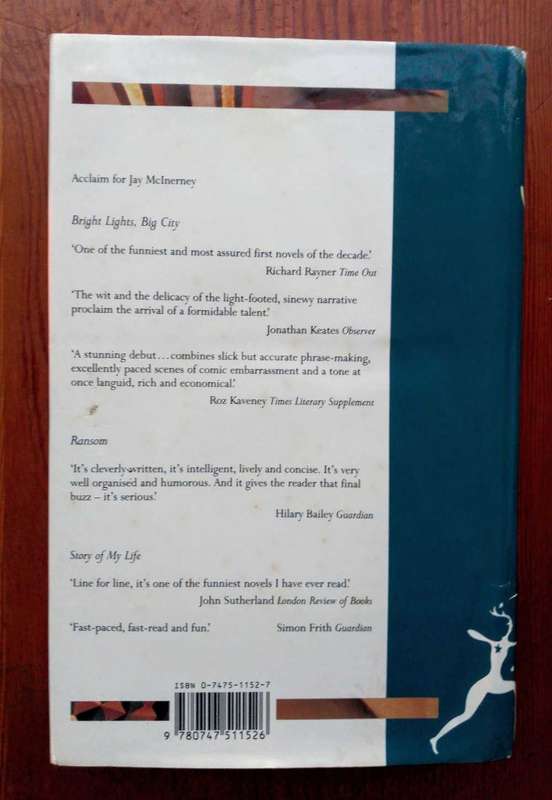 Acclaim for Jay McInerney
Bright Lights, Big City
'One of the funniest and most assured first novels of the decade.'
Richard Rayner Time Out
'The wit and the delicacy of the light-footed, sinewy narrative
proclaim the arrival of a formidable talent.'
Jonathan Keates Observer
'A stunning debut...combines slick but accurate phrase-making,
excellently paced scenes of comic embarrassment and a tone at
once languid, rich and economical.'
Roz Kaveney Times Literary Supplement
Ransom
'It's cleverly written, it's intelligent, lively and concise. It's very
well organised and humorous. And it gives the reader that final
buzz – it's serious.'
Hilary Bailey Guardian
Story of My Life
'Line for line, it's one of the funniest novels I have ever read.'
John Sutherland London Review of Books
'Fast-paced, fast-read and fun.' Simon Frith Guardian
ISBN 0-7475-1152-7
9 780747 511526